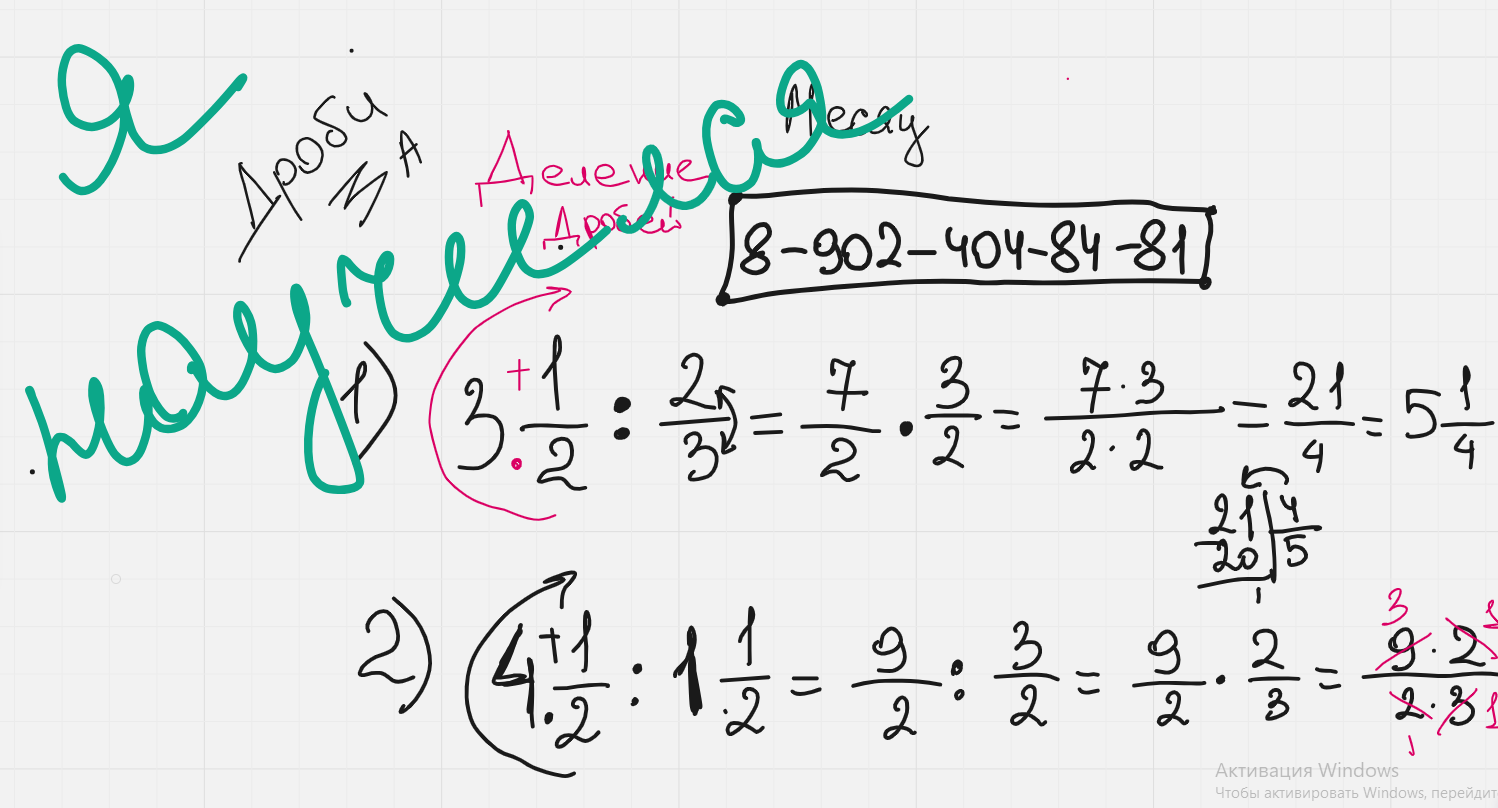 Я
научился
Дроби
МА
Деление
дробей
8-902-404-84-81
1) 3 1/2 : 2/3 = 7/2 · 3/2 = 7·3/2·2 = 21/4 = 5 1/4
21 4
20 5
1
2) 4 1/2 : 1 1/2 = 9/2 : 3/2 = 9/2 · 2/3 = 9·2/2·3
3 1
1 1
Активация Windows
Чтобы активировать Windows, перейдит